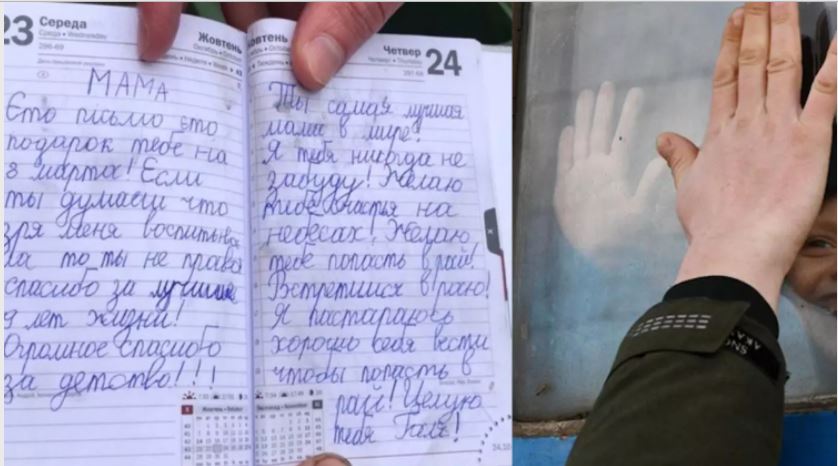 23 Середа
Середа • Wednesday
296-69
Жовтень
МАМА
Єто пісьмо єто
подарок тебе на
8 марта! Если
ты думаеш что
зря меня воспитыва
ла то ты не права
спасибо за лучшие
9 лет жизни!
Огромное спасибо
за детство!!!
Жовтень
Четвер 24
297-68
Ты самая лучшая
мама в мире!
Я тебя никогда не
забуду! Желаю
тебе счастья на
небесах! Желаю
тебе попасть в рай!
Встретимся в раю!
Я постараюсь
хорошо себя вести
чтобы попасть в
рай! Целую
тебя Галя!
24.10